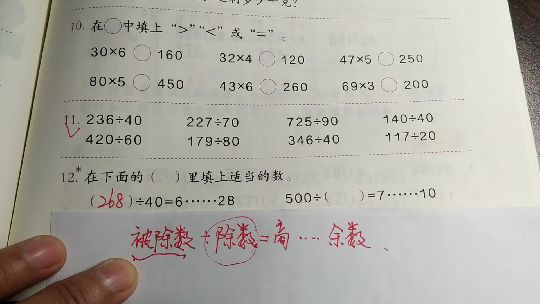 10. 在○中填上“>”“<”或“=”。
30×6○160 32×4○120 47×5○250
80×5○450 43×6○260 69×3○200
11. 236÷40 227÷70 725÷90 140÷40
420÷60 179÷80 346÷40 117÷20
12.*在下面的( )里填上适当的数。
(268)÷40=6……28 500÷( )=7……10
被除数÷除数=商…余数